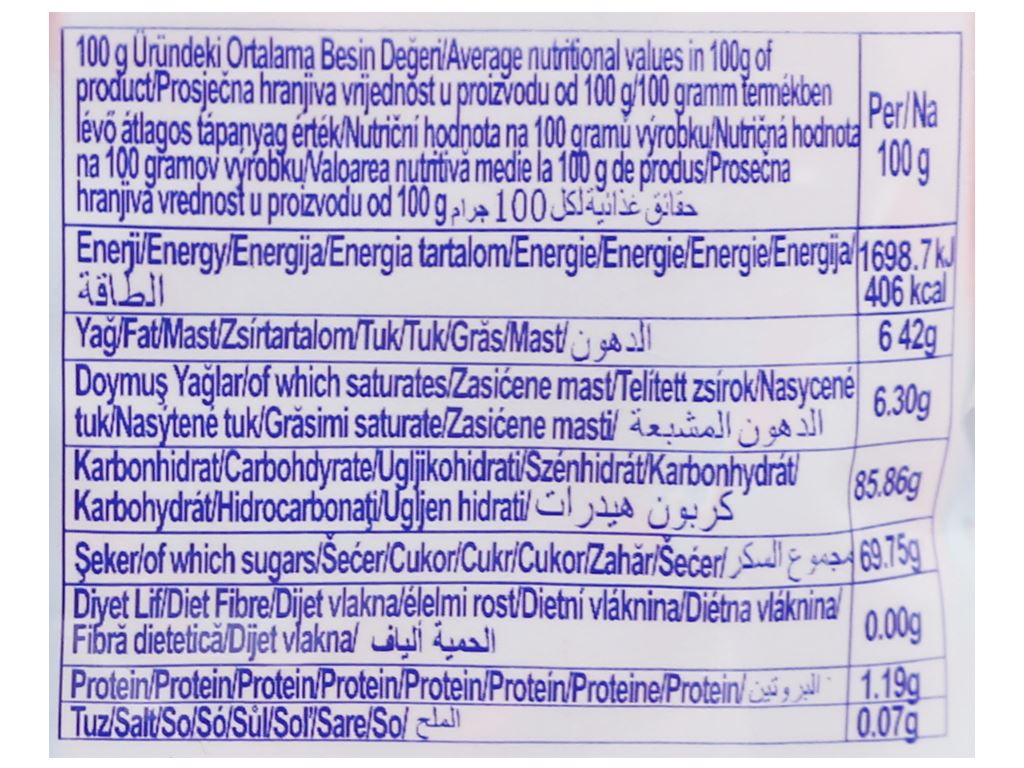 100 g Üründeki Ortalama Besin Değeri/Average nutritional values in 100g of
product/Prosječna hranjiva vrijednost u proizvodu od 100 g/100 gramm termékben
lévő átlagos tápanyag érték/Nutriční hodnota na 100 gramů výrobku/Nutričná hodnota
na 100 gramov výrobku/Valoarea nutritivă medie la 100 g de produs/Prosečna
hranjiva vrednost u proizvodu od 100 g حقائق غذائية لكل 100 جرام
Per/Na
100 g
Enerji/Energy/Energija/Energia tartalom/Energie/Energie/Energie/Energija/
الطاقة
1698.7kJ
406 kcal
Yağ/Fat/Mast/Zsírtartalom/Tuk/Tuk/Grăs/Mast/ الدهون
6 42g
Doymuş Yağlar/of which saturates/Zasićene mast/Telített zsírok/Nasycené
tuk/Nasýtené tuk/Grăsimi saturate/Zasićene masti/ الدهون المشبعة
6.30g
Karbonhidrat/Carbohdyrate/Ugljikohidrati/Szénhidrát/Karbonhydrát/
Karbohydrát/Hidrocarbonaţi/Ugljen hidrati/ كربون هيدرات
85.86g
Şeker/of which sugars/Šećer/Cukor/Cukr/Cukor/Zahăr/Šećer/ مجموع السكر
69.75g
Diyet Lif/Diet Fibre/Dijet vlakna/élelmi rost/Dietní vláknina/Diétna vláknina/
Fibră dietetică/Dijet vlakna/ الحمية ألياف
0.00g
Protein/Protein/Protein/Protein/Protein/Proteín/Proteine/Protein/ البروتين
1.19g
Tuz/Salt/So/Só/Sůl/Soľ/Sare/So/ الملح
0.07g